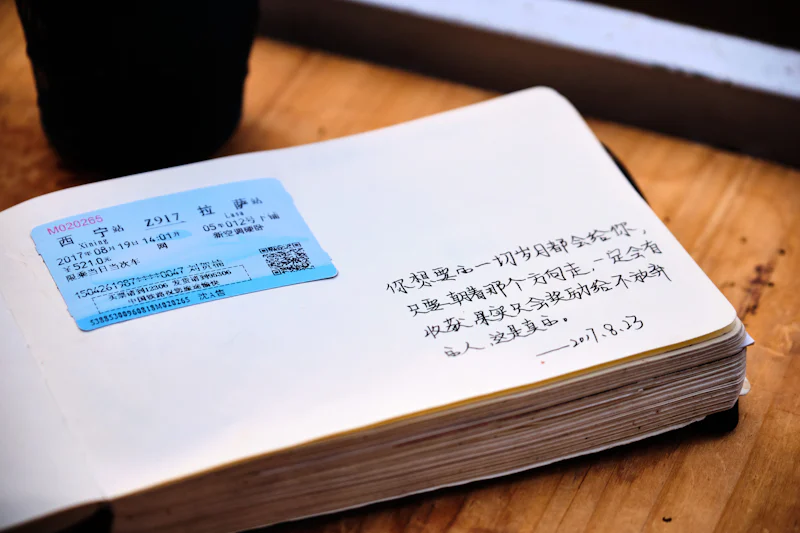 M020265
西宁站 Z917 拉萨站
Xining Lasa
2017年08月19日14:01开 05车012号下铺
¥521.0元 网 新空调硬卧
限乘当日当次车
1504261987****0047 刘贺楠
买票请到12306 发货请到95306
中国铁路祝您旅途愉快
53885300960818M020265 沈A售
你想要的一切岁月都会给你,
只要朝着那个方向走,一定会有
收获,果实只会奖励给不放弃
的人,这是真的。
——2017.8.23